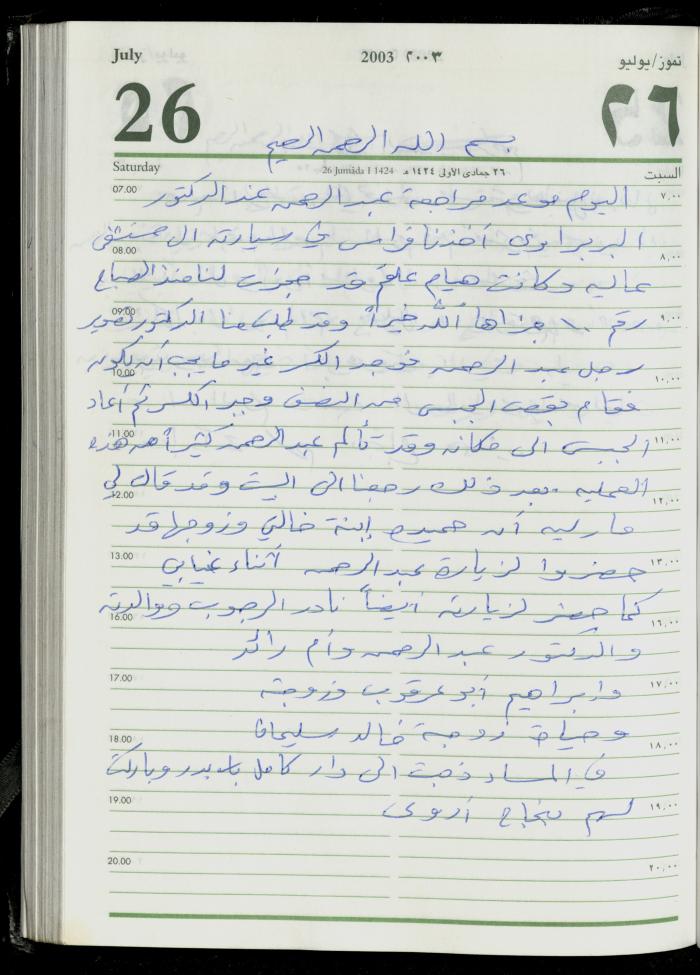 July 2003 ٢٠٠٣ تموز/يوليو
26 ٢٦
بسم الله الرحمن الرحيم
Saturday 26 Jumâda I 1424 ٢٦ جمادى الأولى ١٤٢٤ هـ السبت
07.00 اليوم موعد مراجعة عبد الرحمن عند الدكتور ٧,٠٠
البربراوي أخذنا فراس في سيارته الى مستشفى
08.00 ٨,٠٠
عاليه وكانت هيام علقم قد حجزت لنا منذ الصباح
09.00 رقم ١٠ جزاها الله خيراً وقد طلب منا الدكتور تصوير ٩,٠٠
رجل عبد الرحمن فوجد الكسر غير ما يجب أن يكون
10.00 ١٠,٠٠
فقام بقص الجبس من النصف وجبر الكسر ثم أعاد
11.00 الجبس الى مكانه وقد تألم عبد الرحمن كثيراً من هذه ١١,٠٠
العمليه بعد ذلك رجعنا الى البيت وقد قال لي
12.00 ١٢,٠٠
أن إبنة خالتي وزوجها قد
13.00 حضروا لزيارة عبد الرحمن أثناء غيابي ١٣,٠٠
كما حضر لزيارته أيضاً نادر الرجوب ووالدته
16.00 ١٦,٠٠
والدكتور عبد الرحمن وأم رائد
17.00 وابراهيم أبو عرقوب وزوجته ١٧,٠٠
وحياة زوجة خالد سليمان
18.00 ١٨,٠٠
في المساء ذهبت الى دار كامل وباركت
19.00 لهم بنجاح أروى ١٩,٠٠
20.00 ٢٠,٠٠